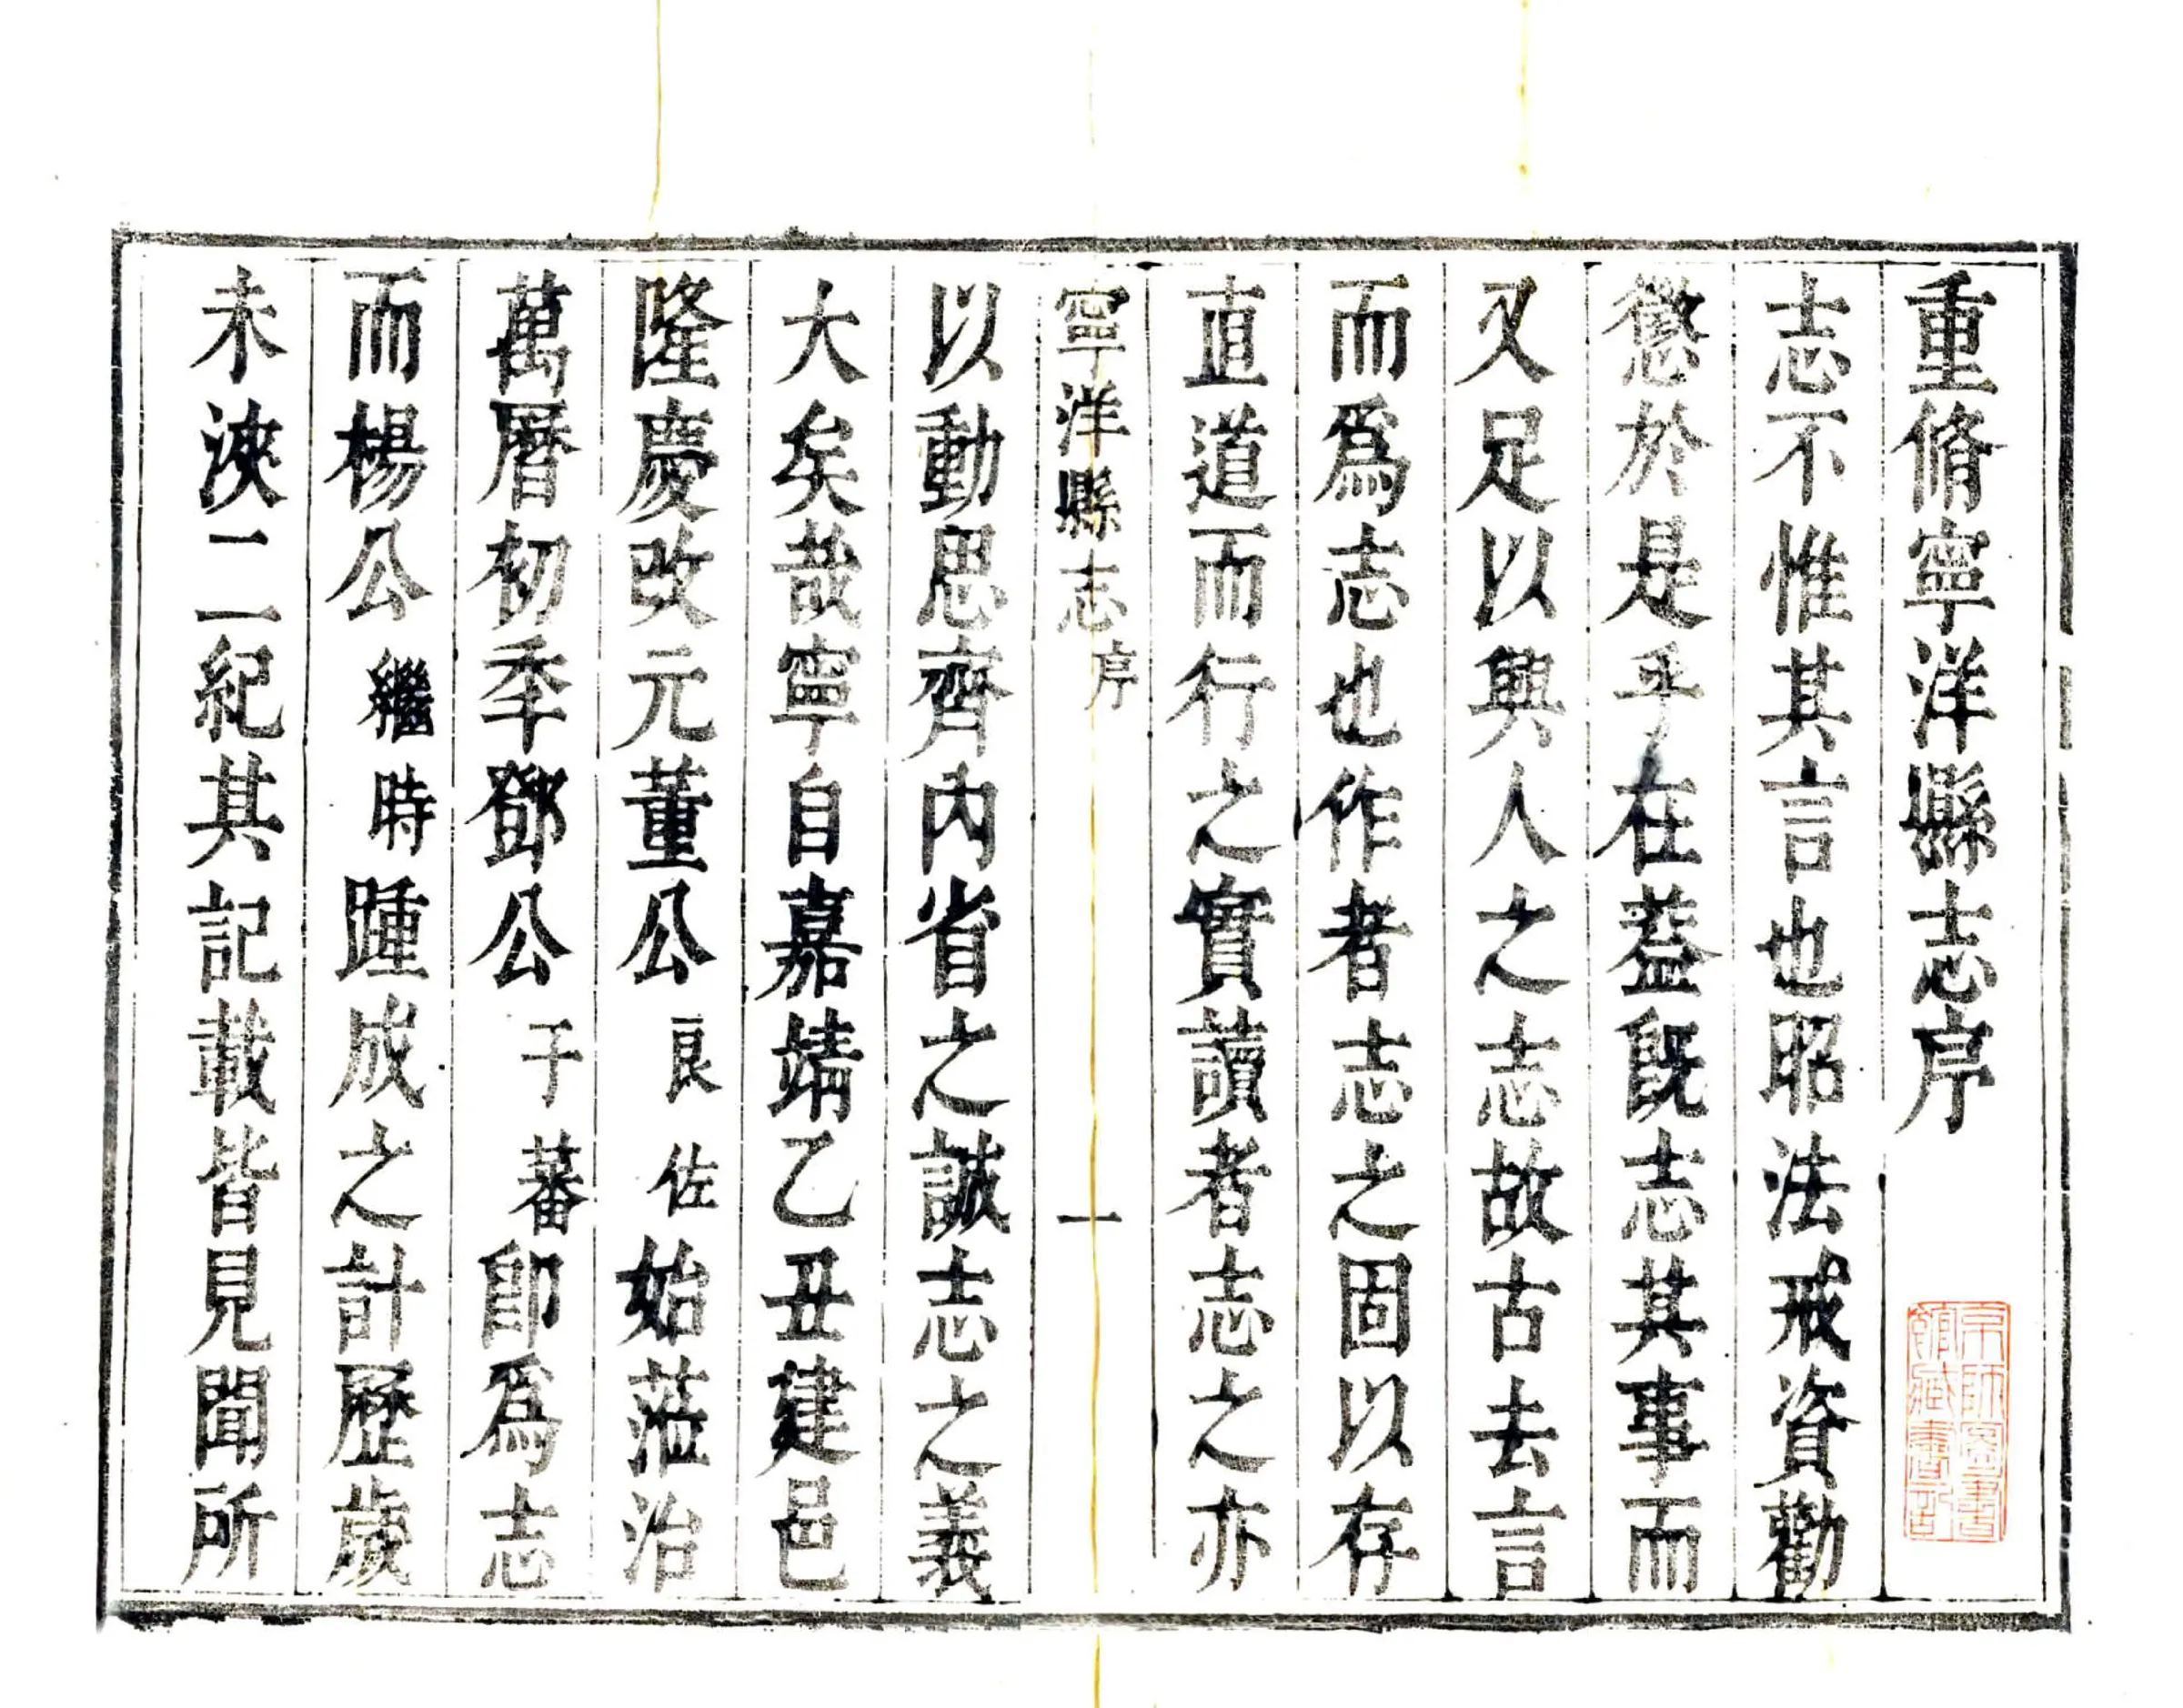 重脩寧洋縣志序
志不惟其言也昭法戒資勸
懲於是乎在葢旣志其事而
又足以興人之志故古去言
而爲志也作者志之固以存
直道而行之實讀者志之亦
寧洋縣志 序 一
以動思齊內省之誠志之義
大矣哉寧自嘉靖乙丑建邑
隆慶改元董公良佐始蒞治
萬曆初季鄧公于蕃卽爲志
而楊公繼時踵成之計歷歲
未浹二紀其記載皆見聞所
京師圖書館藏書記